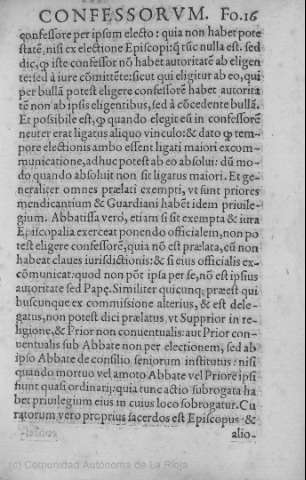 CONFESSORVM. Fo.16
confessore per ipsum electo: quia non habet pote
statē, nisi ex electione Episcopi; tūc nulla est. sed
dic, ꝙ iste confessor nō habet autoritatē ab eligen
te: sed à iure cōmittēte: sicut qui eligitur ab eo, qui
per bullā potest eligere confessorē habet autorita
tē non ab ipsis eligentibus, sed à cōcedente bullā.
Et possibile est, ꝙ quando elegit eū in confessorē
neuter erat ligatus aliquo vinculo: & dato ꝙ tem-
pore electionis ambo essent ligati maiori excom-
municatione, adhuc potest ab eo absolui: dū mo-
do quando absoluit non sit ligatus maiori. Et ge-
neraliter omnes prælati exempti, vt sunt priores
mendicantium & Guardiani habēt idem priuile-
gium. Abbatissa verò, etiam si sit exempta & iura
Episcopalia exerceat ponendo officialem, non po
test eligere confessorē, quia nō est prælata, cū non
habeat claues iurisdictionis: & si eius officialis ex-
cōmunicat: quod non pōt ipsa per se, nō est ipsius
autoritate sed Papę. Similiter quicunq; præest qui
buscunque ex commissione alterius, & est dele-
gatus, non potest dici prælatus, vt Supprior in re-
ligione, & Prior non conuentualis: aut Prior con-
uentualis sub Abbate non per electionem, sed ab
ipso Abbate de consilio seniorum institutus: nisi
quando mortuo vel amoto Abbate vel Priore ipsi
fiunt quasi ordinarij: quia tunc actio subrogata ha
bet priuilegium eius in cuius loco sobrogatur. Cu
ratorum vero proprius sacerdos est Episcopus &
alio-
(c) Comunidad Autónoma de La Rioja